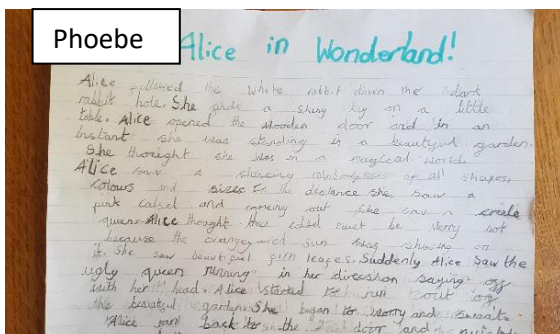 Phoebe
Alice in Wonderland!
Alice follewed the white rabbit down the dark
rabbit hole. She a shiny key on a little
table. Alice opened the wooden door and in an
instant she was standing in a beautiful garden.
She thought she was in a magical world.
Alice saw a of all shapes,
colours and sizes. In the distance she saw a
pink and coming out she saw a
queen. Alice thought the must be very hot
because the orange red sun was shining on
it. She saw beautiful leafes. Suddenly Alice saw the
ugly queen running in her direcsion saying off
with her head. Alice started to run out of
this beautiful garden. She began to worry and
Alice ran back to the door and